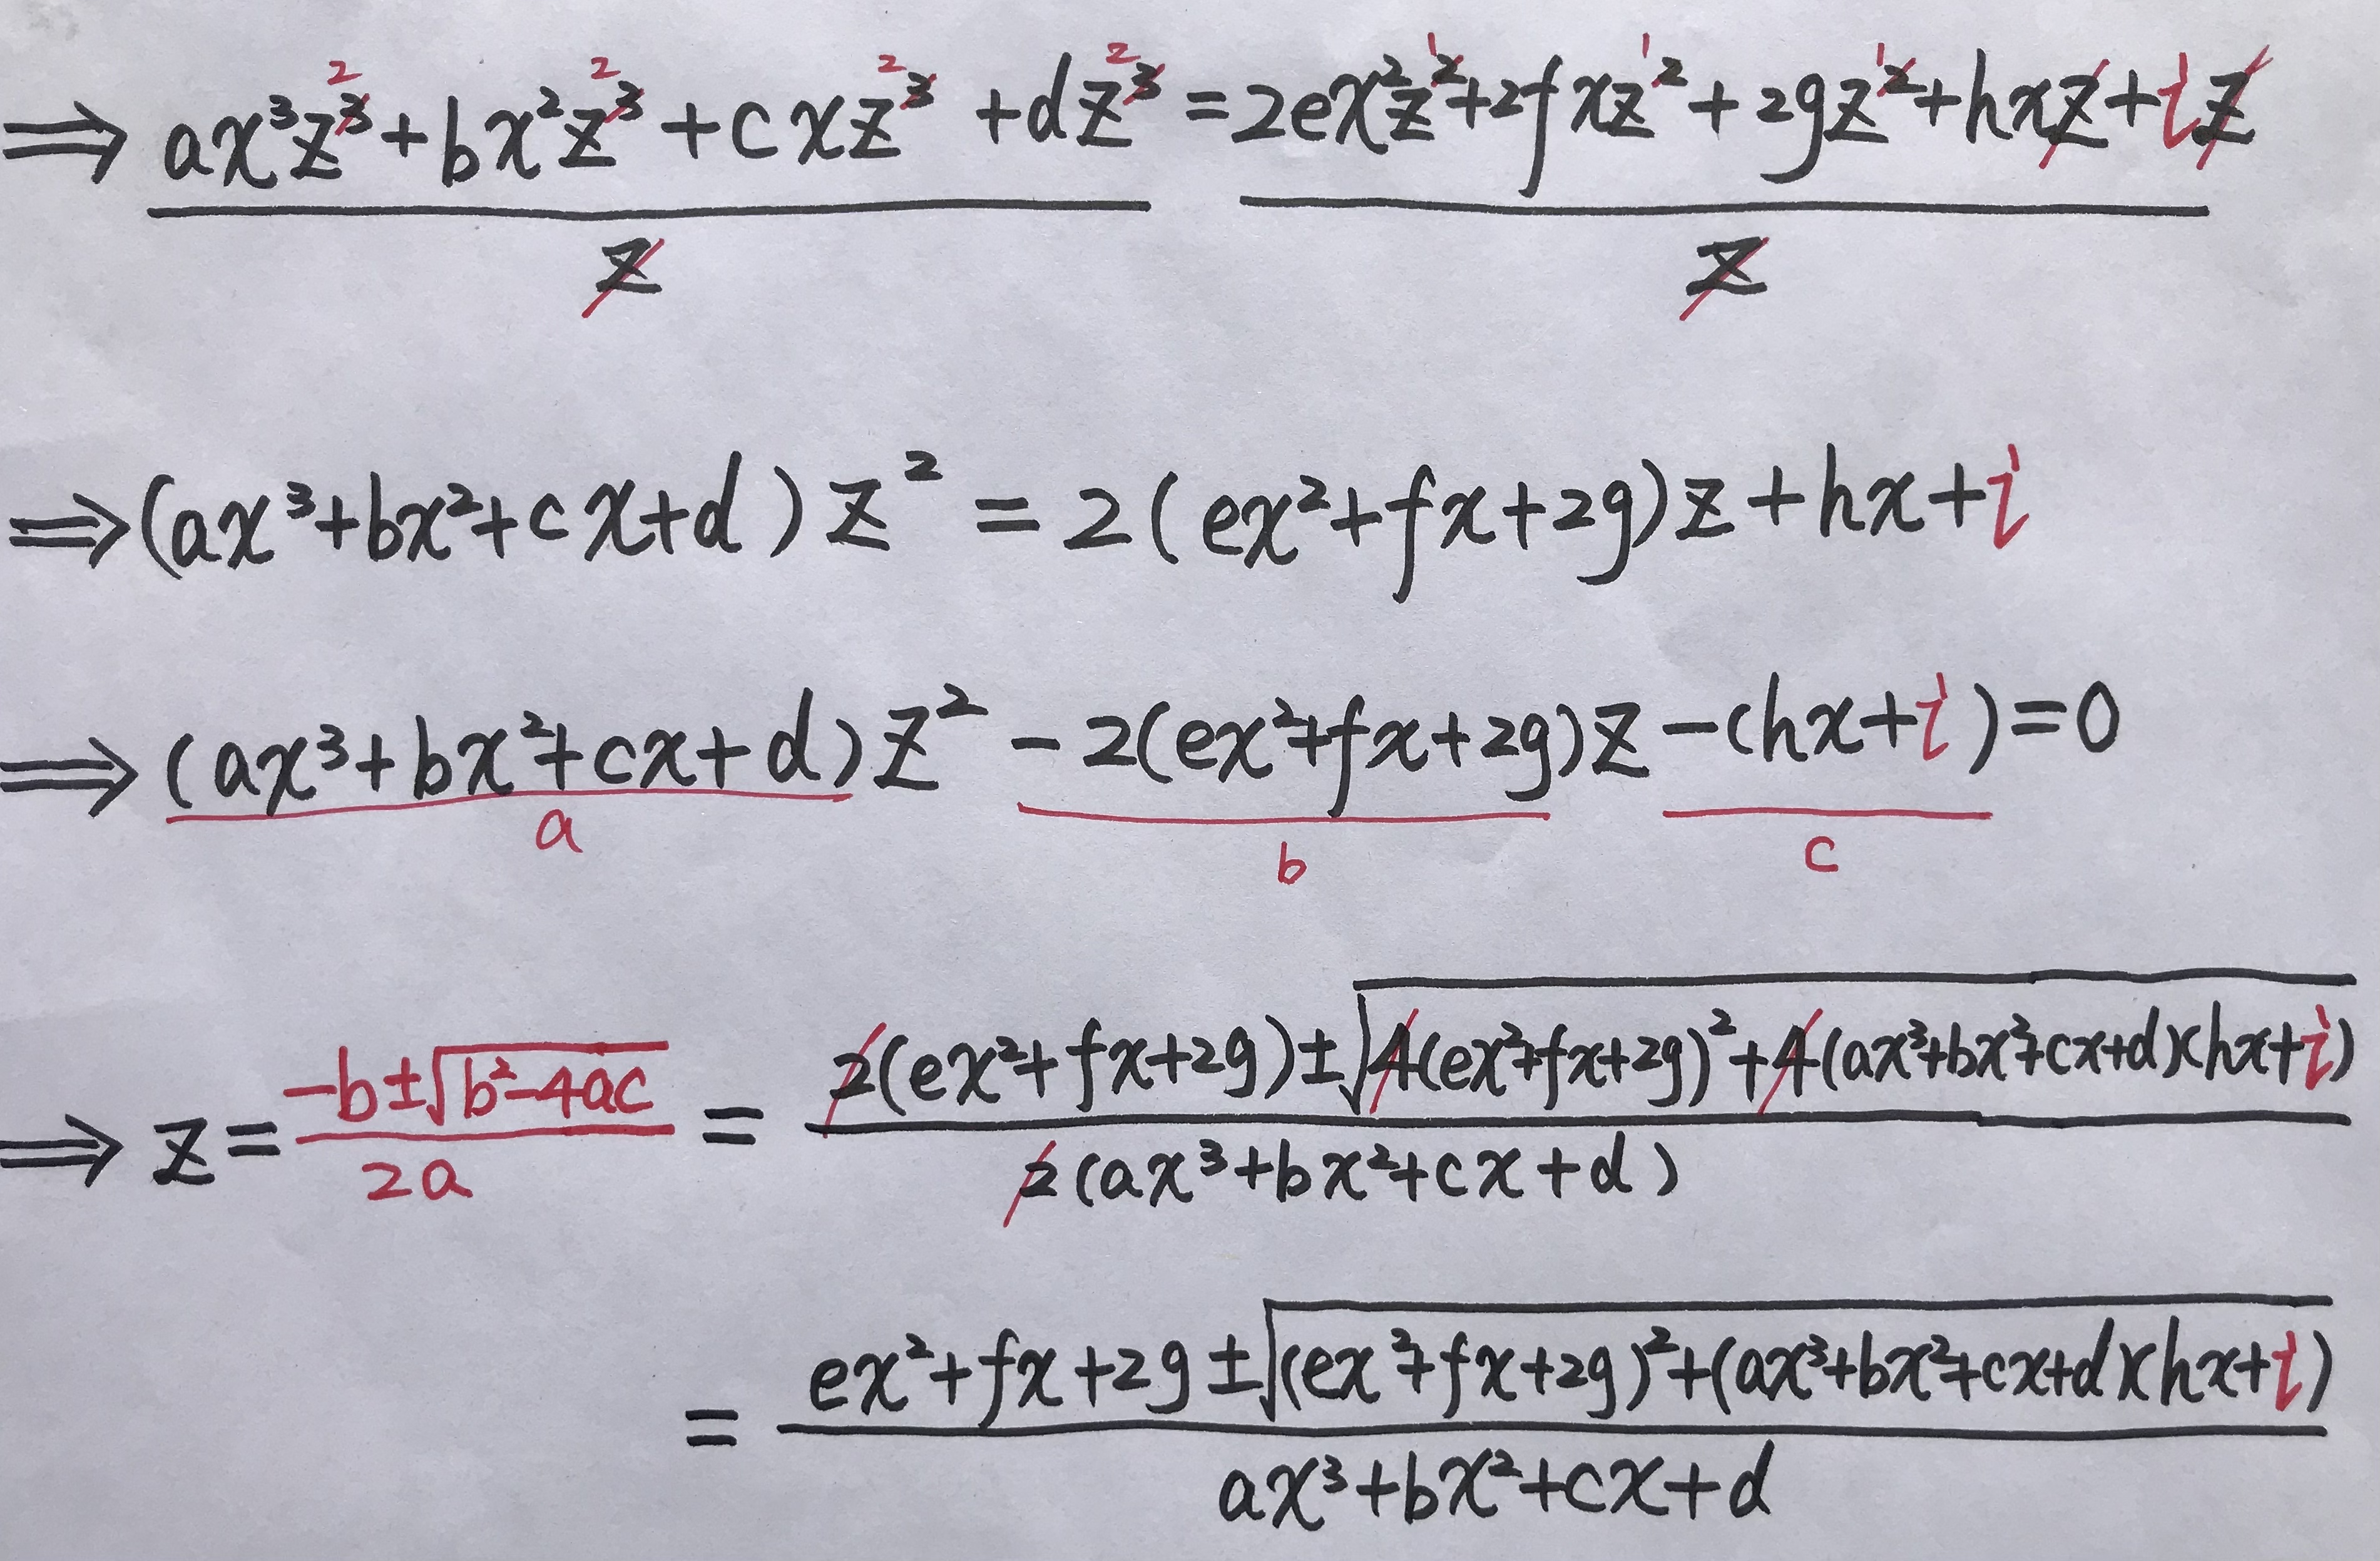 2 2 2 2 1 1 1
⟹ ax³z³+bx²z³+cxz³+dz³=2ex²z²+2fxz²+2gz²+hxz+iz
z z
⟹(ax³+bx²+cx+d)z²=2(ex²+fx+2g)z+hx+i
⟹(ax³+bx²+cx+d)z²-2(ex²+fx+2g)z-(hx+i)=0
a b c
⟹z=(-b±√(b²-4ac))/(2a)=(2(ex²+fx+2g)±√(4(ex²+fx+2g)²+4(ax³+bx²+cx+d)(hx+i)))/(2(ax³+bx²+cx+d))
=(ex²+fx+2g±√((ex²+fx+2g)²+(ax³+bx²+cx+d)(hx+i)))/(ax³+bx²+cx+d)